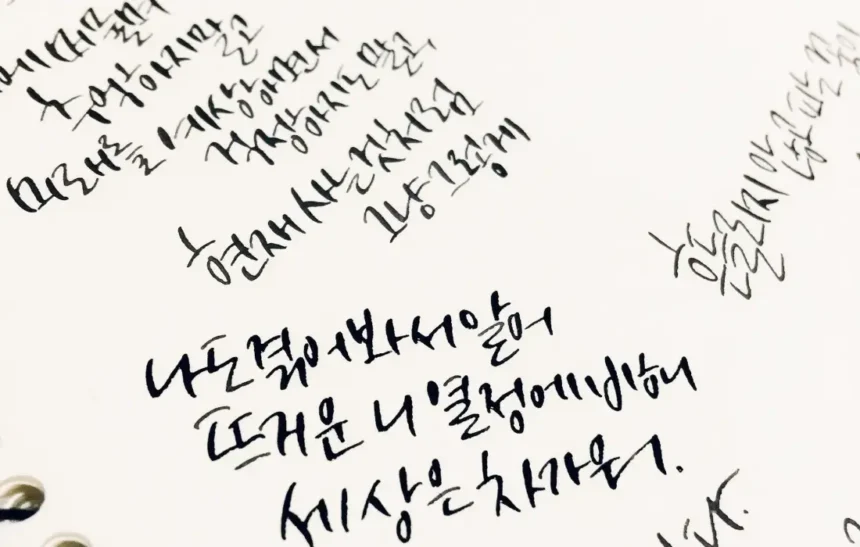 추억하지말고
미래를 예상하면서
걱정하지도 말고,
현재 사는것처럼
그냥 그렇게
나도 겪어봐서 알어
뜨거운 니 열정에 비하니
세상은 차가워.
흔들리지 않고